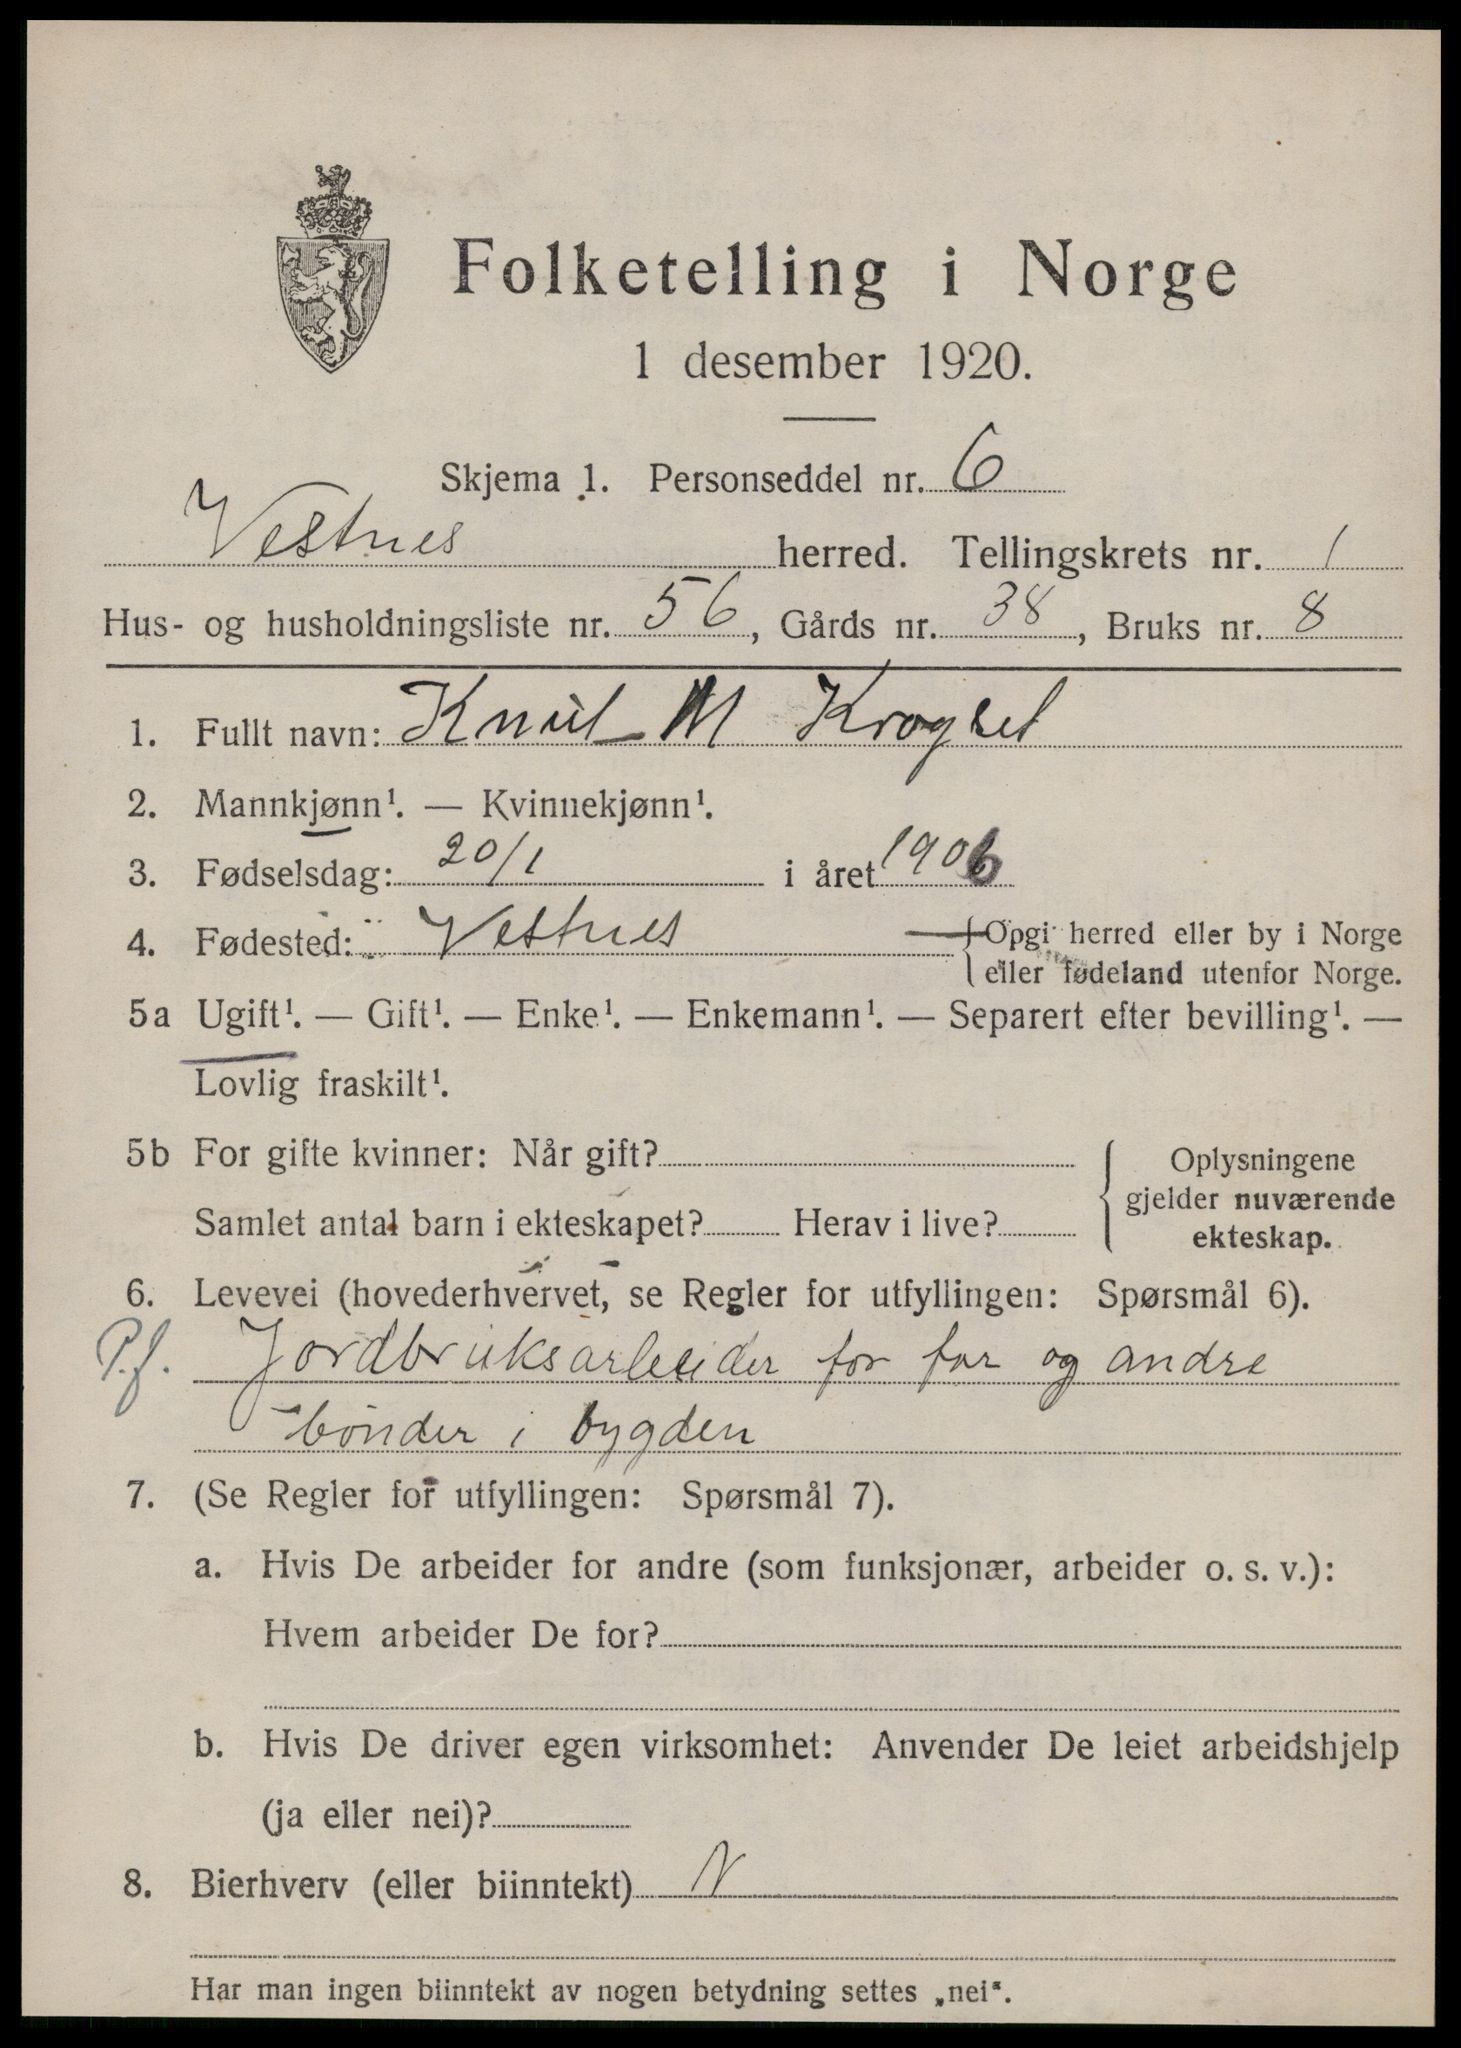 Folketelling i Norge
1 desember 1920.
Skjema 1. Personseddel nr. 6
Vestnes herred. Tellingskrets nr. 1
Hus- og husholdningsliste nr. 56, Gårds nr. 38, Bruks nr. 8
1. Fullt navn: Knut M Krogset
2. Mannkjønn¹. — Kvinnekjønn¹.
3. Fødselsdag: 20/1 i året 1906
4. Fødested: Vestnes { Opgi herred eller by i Norge
eller fødeland utenfor Norge.
5a Ugift¹. — Gift¹. — Enke¹. — Enkemann¹. — Separert efter bevilling¹. —
Lovlig fraskilt¹.
5b For gifte kvinner: Når gift?
Samlet antal barn i ekteskapet? Herav i live?
{ Oplysningene
gjelder nuværende
ekteskap.
6. Levevei (hovederhvervet, se Regler for utfyllingen: Spørsmål 6).
P.f. Jordbruksarbeider for far og andre
bønder i bygden
7. (Se Regler for utfyllingen: Spørsmål 7).
a. Hvis De arbeider for andre (som funksjonær, arbeider o. s. v.):
Hvem arbeider De for?
b. Hvis De driver egen virksomhet: Anvender De leiet arbeidshjelp
(ja eller nei)?
8. Bierhverv (eller biinntekt) N
Har man ingen biinntekt av nogen betydning settes „nei".